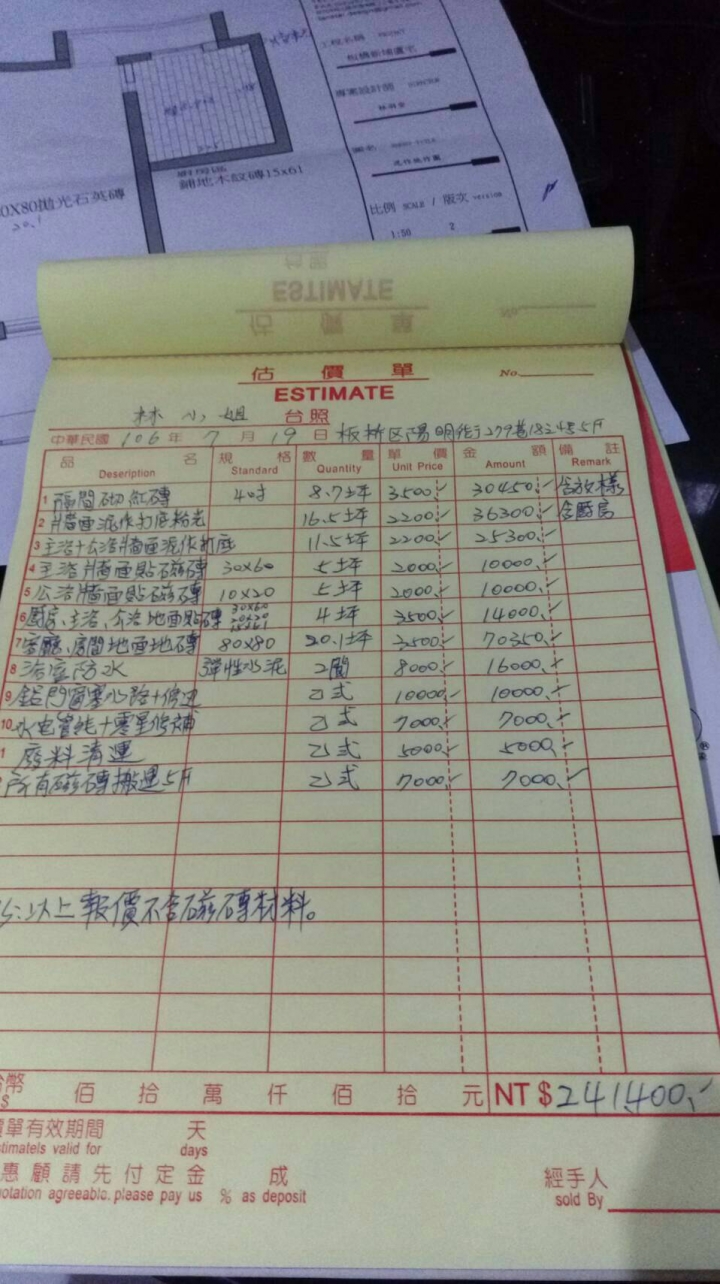 0X80拋光石英磚
20.1
鋪地木紋磚15x61
工程名稱 PROJECT
專案設計師
圖名
比例 SCALE / 版次 version
1:50 2
ESTIMATE
估 價 單 No.
ESTIMATE
林小姐 台照
中華民國 106 年 7 月 19 日 板桥区陽明街279巷18之4号5F
品 名 規 格 數 量 單 價 金 額 備 註
Deseription Standard Quantity Unit Price Amount Remark
1 隔間砌紅磚 4吋 8.7坪 3500.- 30450.- 含放樣
2 牆面泥作打底粉光 16.5坪 2200.- 36300.- 含廚房
3 主浴+公浴牆面泥作打底 11.5坪 2200.- 25300.-
4 主浴牆面貼磁磚 30x60 5坪 2000.- 10000.-
5 公浴牆面貼磁磚 10x20 5坪 2000.- 10000.-
6 廚房、主浴、公浴地面貼磚 30x60 4坪 3500.- 14000.-
7 客廳、房間地面地磚 80x80 20.1坪 3500.- 70350.-
8 浴室防水 彈性水泥 2間 8000.- 16000.-
9 鋁門窗塞水路+修边 乙式 10000.- 10000.-
10 水电管線+零星修補 乙式 7000.- 7000.-
1 廢料清運 乙式 5000.- 5000.-
所有磁磚搬運5F 乙式 7000.- 7000.-
以上報價不含磁磚材料。
幣 佰 拾 萬 仟 佰 拾 元 NT $ 241,400.-
單有效期間 天
timatels valid for days
惠顧請先付定金 成 經手人
otation agreeablc. please pay us % as deposit sold By